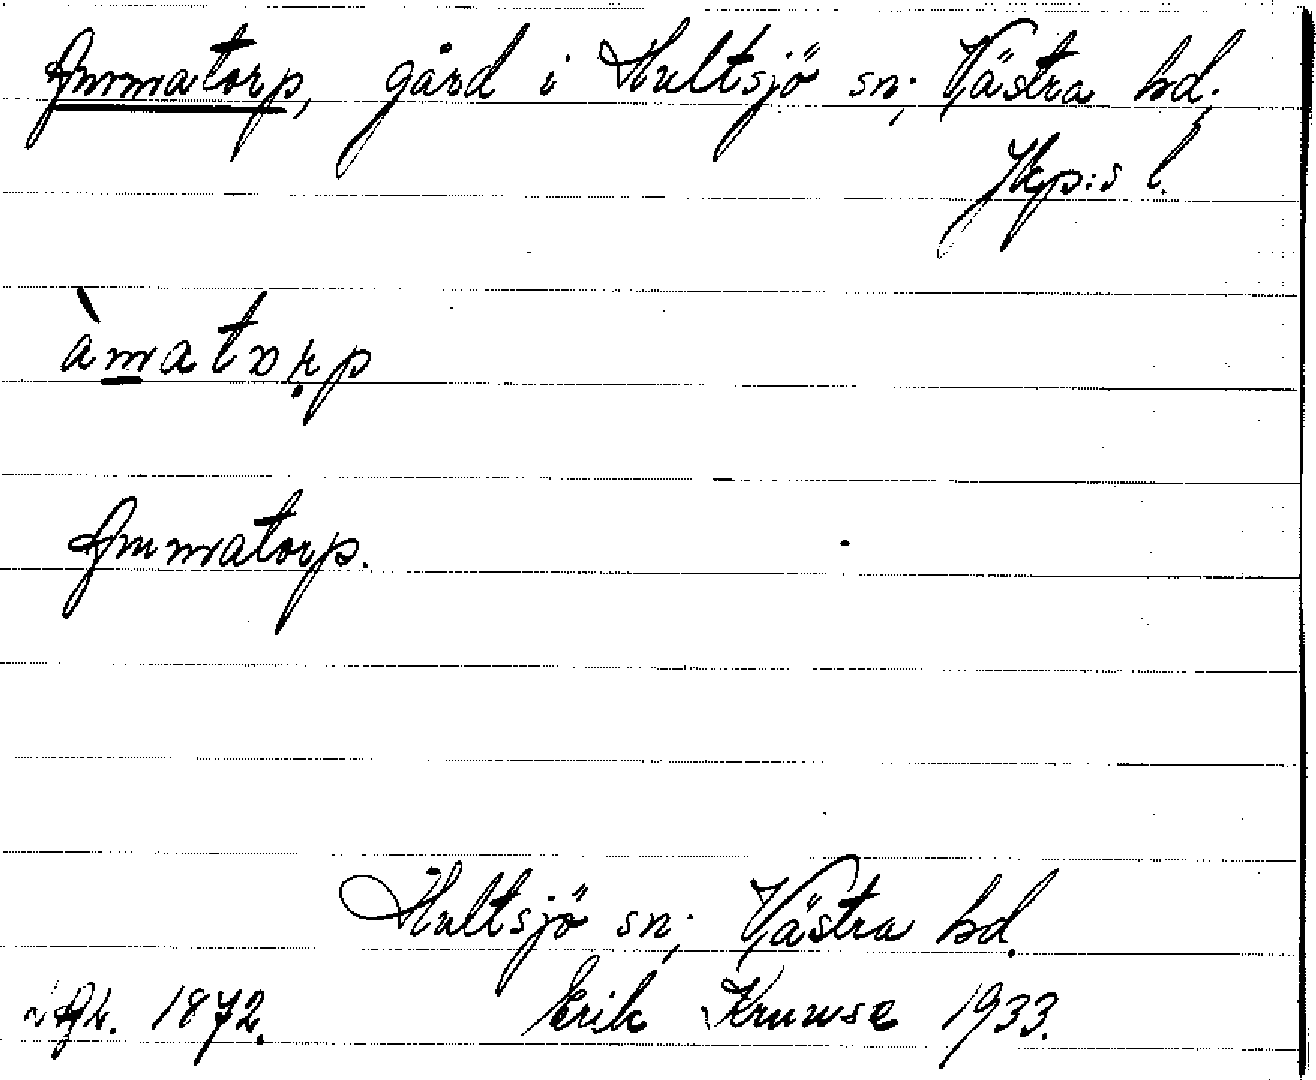 Ammatorp, gård i Hultsjö sn; Västra hd;
Jkp:s l.
àmatorp
Ammatorp.
Hultsjö sn; Västra hd.
1872. Erik Kruuse 1933.